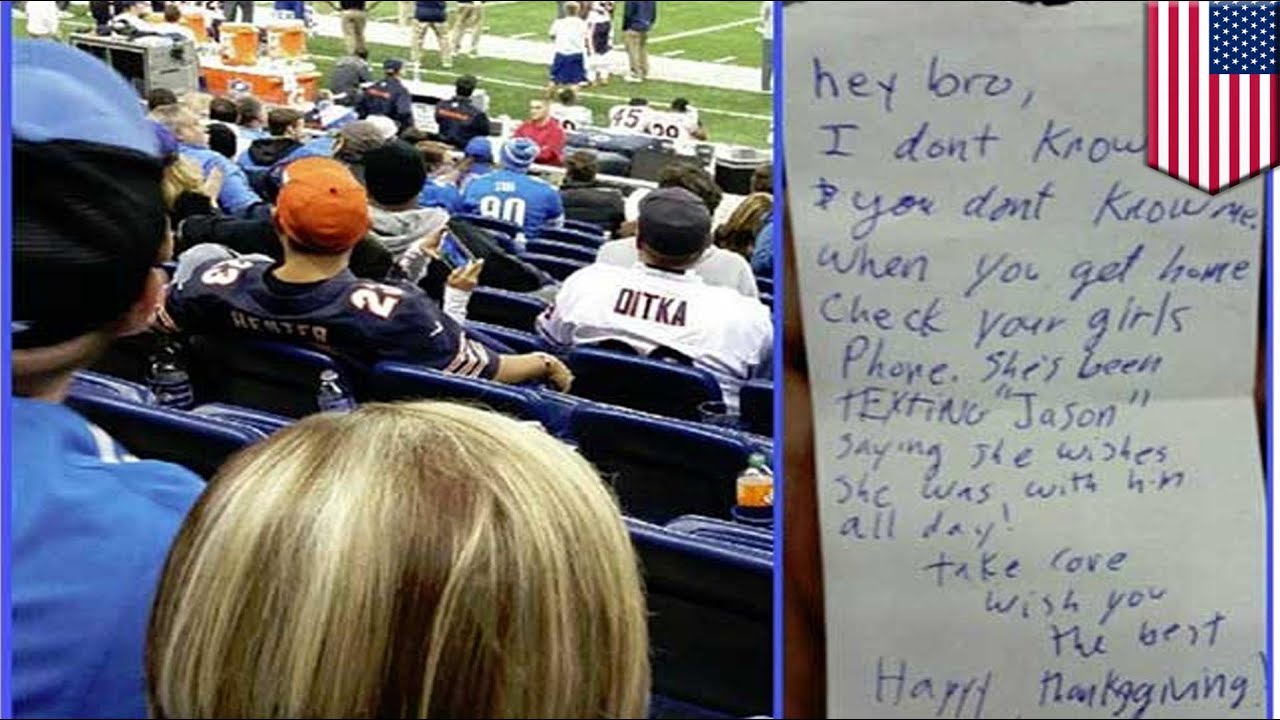 45
29
90
23
HESTER
23
DITKA
hey bro,
I dont Know
& you dont Know me.
When you get home
Check your girls
Phone. She's been
TEXTING "Jason"
saying she wishes
She was with him
all day!
take care
wish you
the best
Happy thanksgiving!